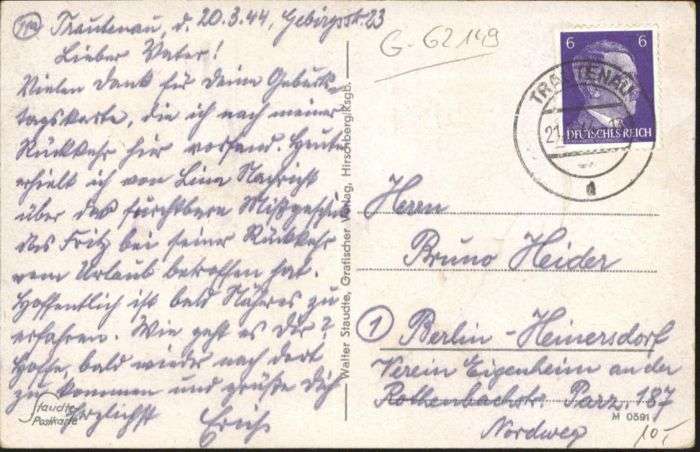 Trautenau, d. 20.3.44, Gebirgsstr. 23
Lieber Vater!
Vielen Dank für Deine Geburts-
tagskarte, die ich nach meiner
Rückkehr hier vorfand. Heute
erhielt ich von Lina Nachricht
über das furchtbare Mißgeschick
das Fritz bei seiner Rückkehr
vom Urlaub betroffen hat.
Hoffentlich ist bald Näheres zu
erfahren. Wie geht es Dir?
Hoffe, bald wieder nach dort
zu kommen und grüße Dich
herzlichst Erich
Staudte
Postkarte
Walter Staudte, Grafischer Verlag, Hirschberg/Ksgb.
G-62149
6 6
DEUTSCHES REICH
TRAUTENAU
21
a
Herrn
Bruno Heider
1 Berlin-Heinersdorf
Verein Eigenheim an der
Rothenbachstr. Parz. 187
Nordweg
M 0591
10,-